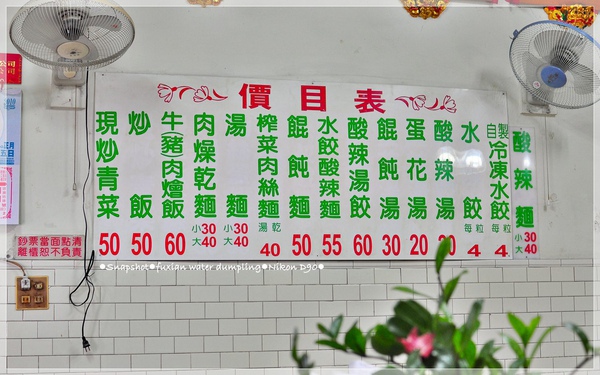 價目表
現炒青菜 50
炒飯 50
牛(豬)肉燴飯 60
肉燥乾麵 小30 大40
湯麵 小30 大40
榨菜肉絲麵 湯乾 40
餛飩麵 50
水餃酸辣麵 55
酸辣湯餃 60
餛飩湯 30
蛋花湯 20
酸辣湯 30
水餃 每粒 4
自製冷凍水餃 每粒 4
酸辣麵 小30 大40
鈔票當面點清
離櫃恕不負責
公司
●Snapshot●fuxian water dumpling●Nikon D90●